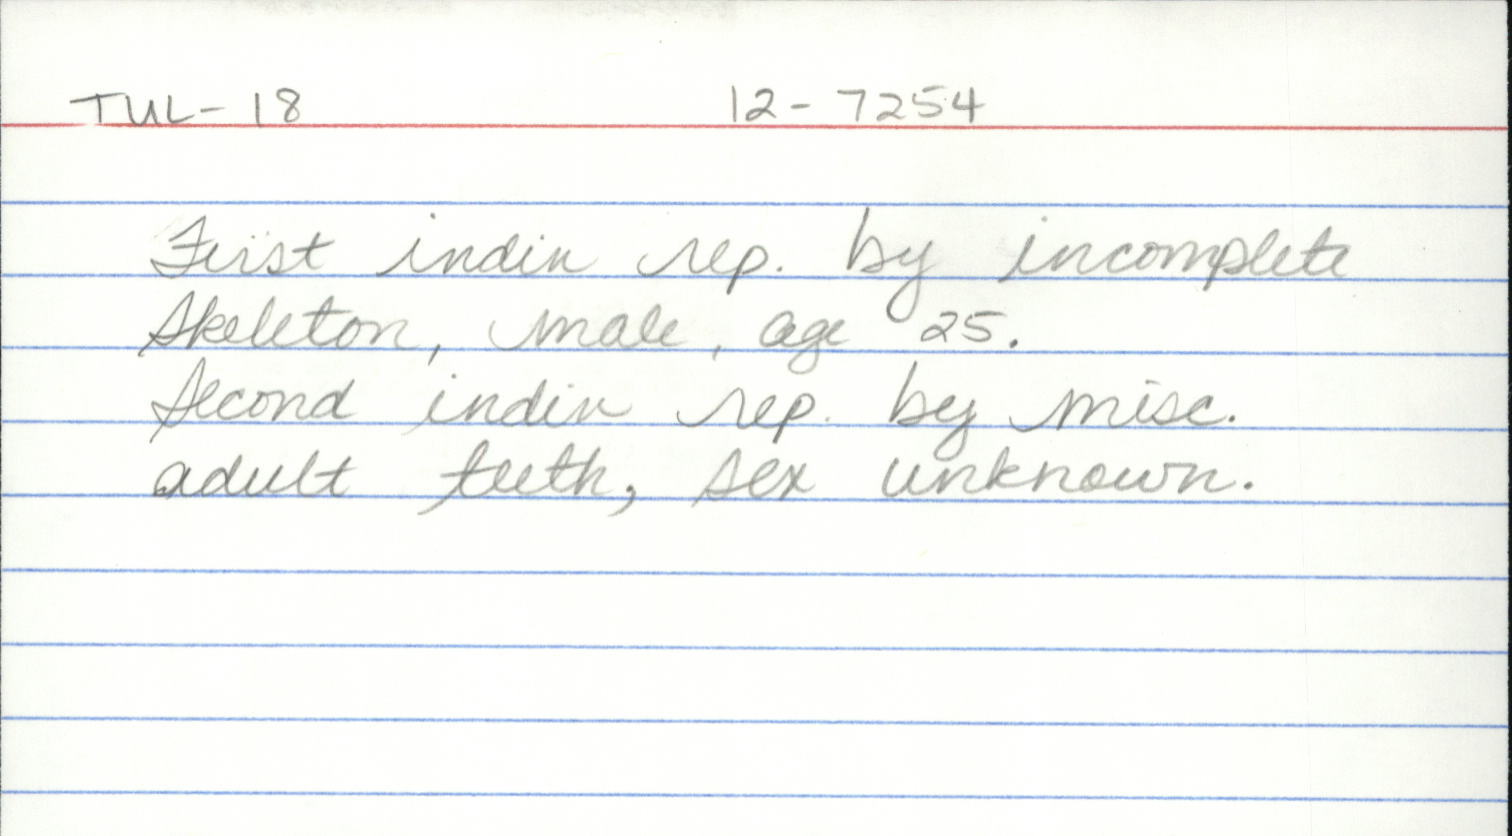 TUL-18 12-7254
First indiv rep. by incomplete
skeleton, male, age 25.
Second indiv rep. by misc.
adult teeth, sex unknown.